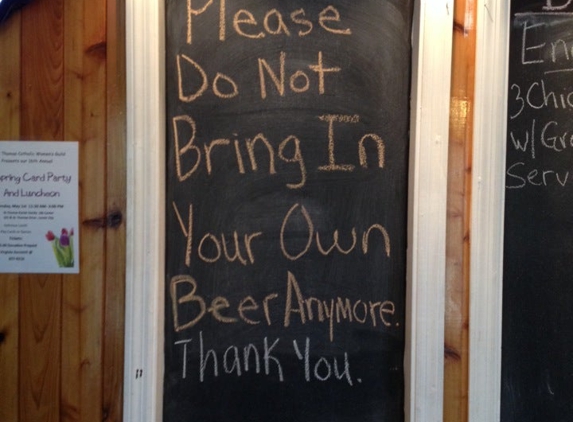 Please
Do Not
Bring In
Your Own
Beer Anymore.
Thank You.
Thomas Catholic Women's Guild
Presents our 36th Annual
Spring Card Party
And Luncheon
En
3 Chic
w/ Gr
Serv